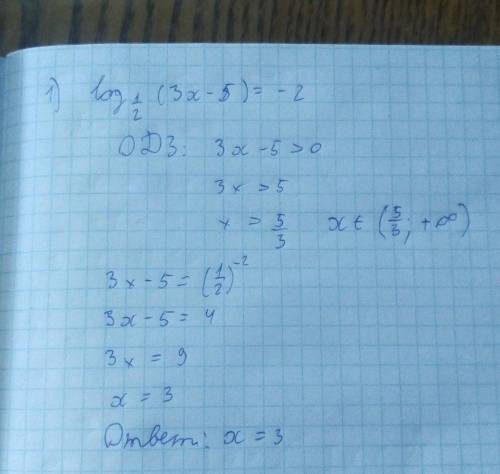 1) log_{1/2} (3x-5) = -2
ОДЗ: 3x-5>0
3x >5
x > 5/3 x ∈ (5/3; +∞)
3x-5 = (1/2)^{-2}
3x-5 = 4
3x = 9
x = 3
Ответ: x = 3